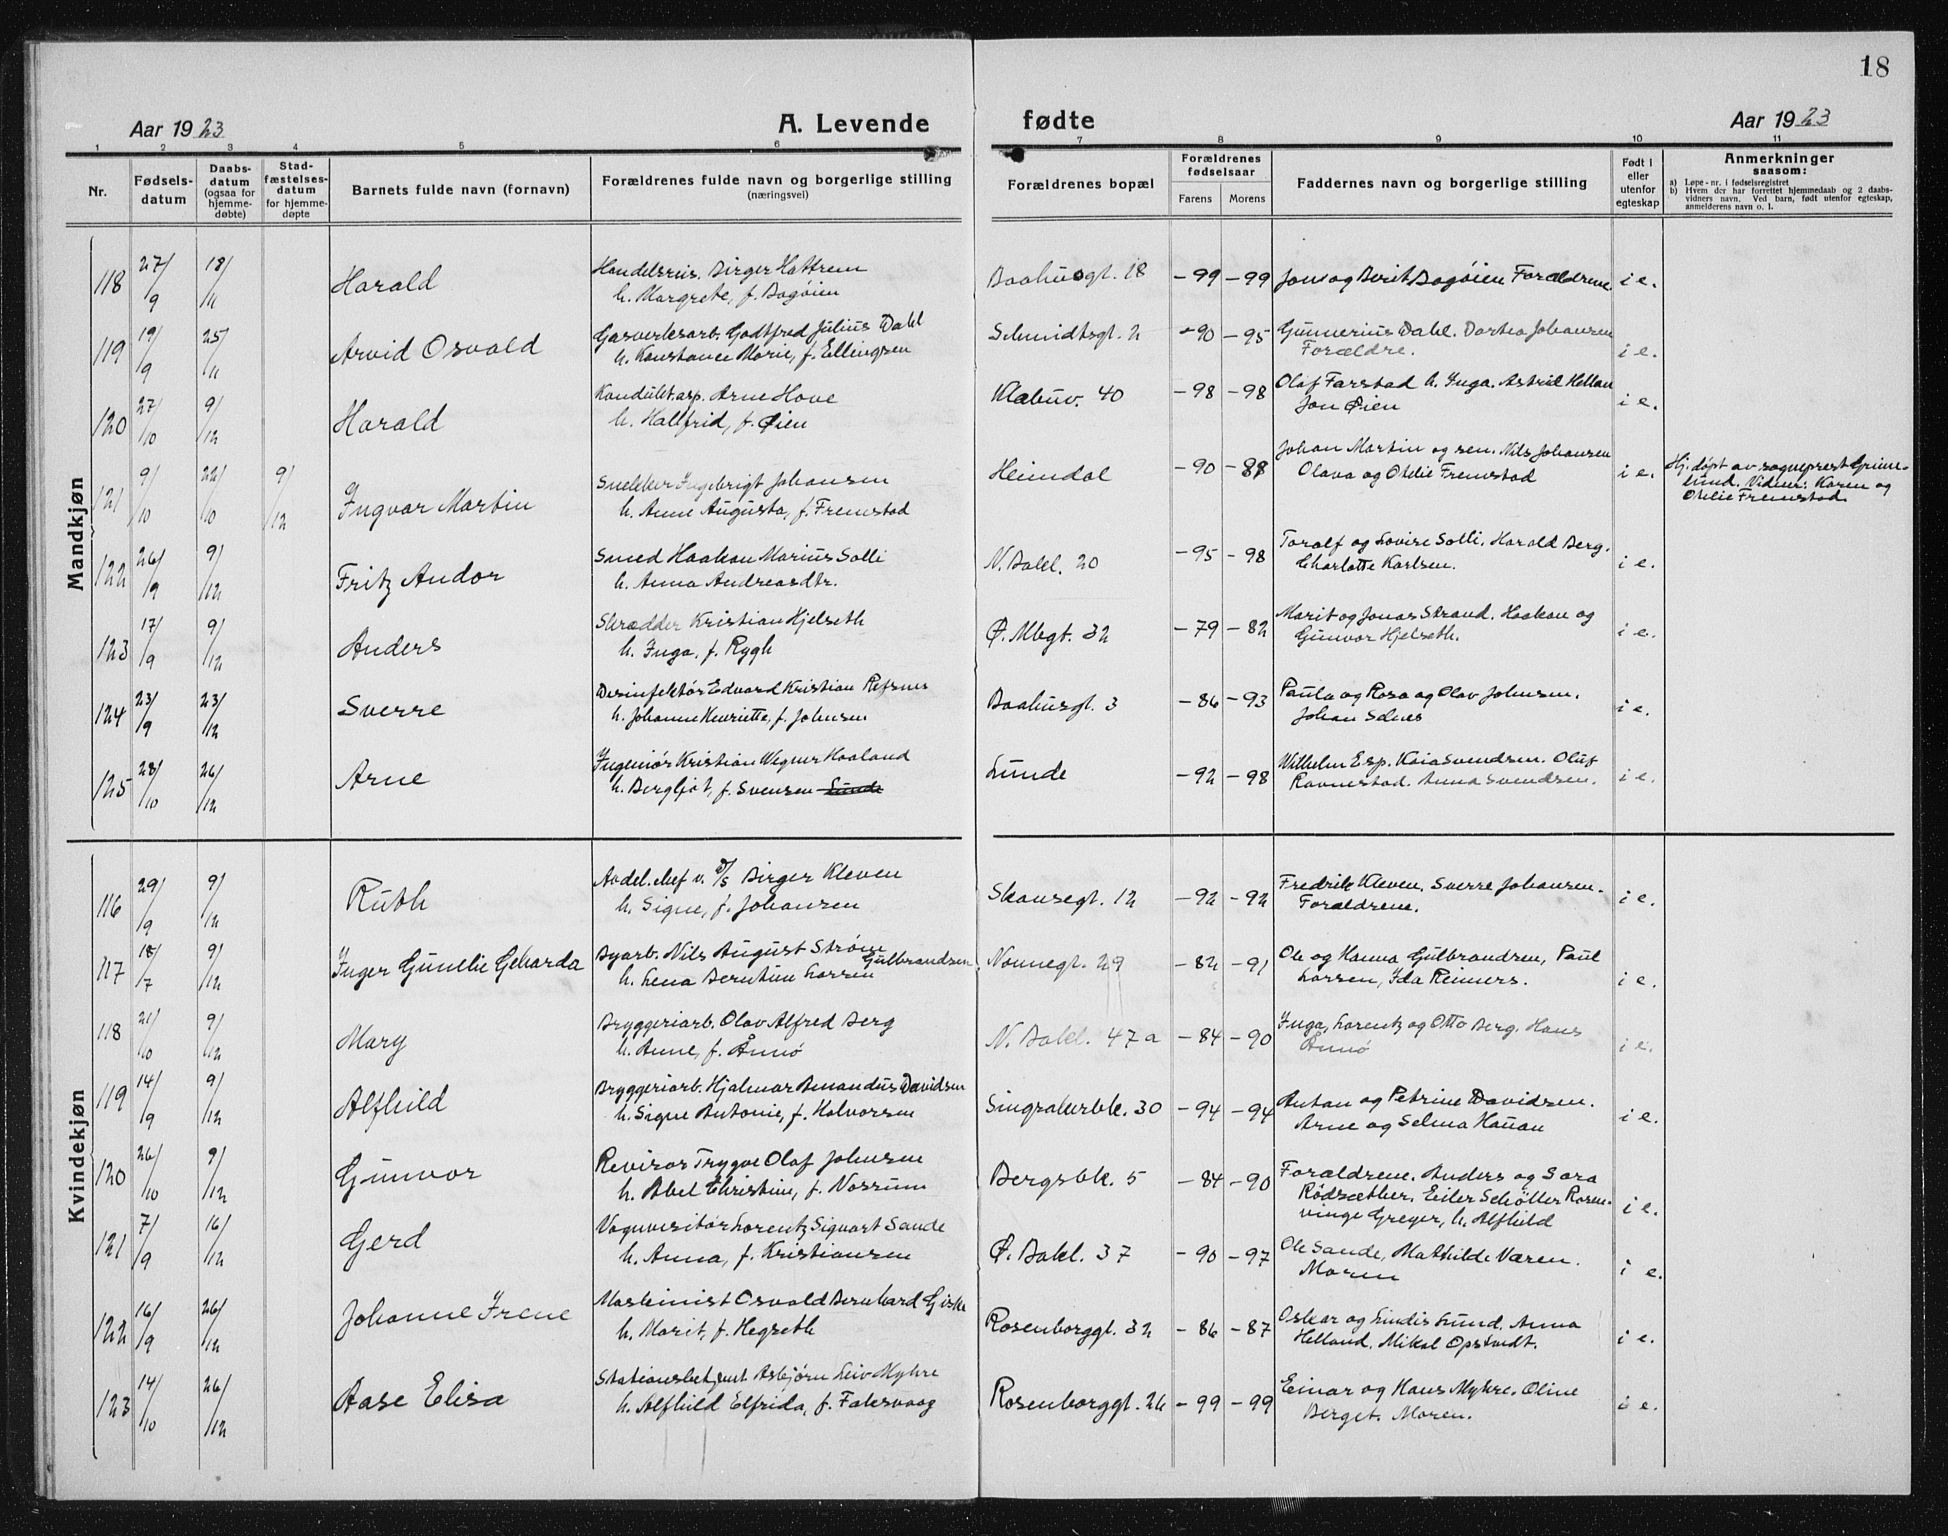 18
Aar 1923
A. Levende
fødte
Aar 1923
1 2 3 4 5 6 7 8 9 10 11
Nr.
Fødsels-
datum
Daabs-
datum
(ogsaa for
hjemme-
døbte)
Stad-
fæstelses-
datum
for hjemme-
døpte
Barnets fulde navn (fornavn)
Forældrenes fulde navn og borgerlige stilling
(næringsvei)
Forældrenes bopæl
Forældrenes
fødselsaar
Farens Morens
Faddernes navn og borgerlige stilling
Født i
eller
utenfor
egteskap
Anmerkninger
saasom:
a) Løpe-nr. i fødselsregistret
b) Hvem der har forrettet hjemmedaab og 2 daabs-
vidners navn. Ved barn, født utenfor egteskap,
anmelderens navn o. l.
Mandkjøn
118 27/9 18/11 Harald
Handelsreis. Birger Hattrem
h. Margrete, f. Bogøien
Baahusgt. 18 -99 -99
Jon og Berit Bogøien Forældrene i e.
119 19/9 25/11 Arvid Osvald
Gasverksarb. Godtfred Julius Dahl
h. Konstance Marie, f. Ellingsen
Schmidtsgt. 2 -90 -95
Gunnerius Dahl. Dortea Johansen
Forældre. i e.
120 27/10 9/12 Harald
Konduktt.asp. Arne Hove
h. Hallfrid, f. Øien
Klæbuv. 40 -98 -98
Olaf Farstad h. Inga. Astrid
Jon Øien i e.
121 9/10 22/10 9/12 Ingvar Martin
Snekker Ingebrigt Johansen
h. Anne Augusta, f. Fremstad
Heimdal -90 -88
Johan Martin og sen. Nils Johansen
Olava og Otelie Fremstad i e.
Hj. døpt av sogneprest Grime-
lund. Vidner: Karen og
Otelie Fremstad
122 26/9 9/12 Fritz Andor
Smed Haakon Marius Solli
h. Anna Andreasdtr.
N. Bakl. 20 -95 -98
Toralf og Lovise Solli. Harald Berg.
Charlotte Karlsen. i e.
123 17/9 9/12 Anders
Skrædder Kristian Hjelseth
h. Inga, f. Rygh
Ø. Mbgt. 32 -79 -82
Marit og Jonas Strand. Haakon og
Gunvor Hjelseth. i e.
124 23/9 23/12 Sverre
Desinfektør Edvard Kristian Refsnes
h. Johanne Henriette, f. Johnsen
Baahusgt. 3 -86 -93
Paula og Rosa og Olav Johnsen.
Johan Selnes i e.
125 28/10 26/12 Arne
Ingeniør Kristian Wegner Haaland
h. Bergljot, f. Svensen Lunde
Lunde -92 -98
Wilhelm Esp. Kaia Svendsen. Oluf
Ravnestad. Anna Svendsen. i e.
Kvindekjøn
116 29/9 9/12 Ruth
Avdel.chef v. D/S Birger Kleven
h. Signe, f. Johansen
Skansegt. 12 -92 -92
Fredrik Kleven. Sverre Johansen.
Forældrene. i e.
117 18/7 9/12 Inger Gunelie Geharda
Byarb. Nils August Strøm
Gulbrandsen
h. Lena Larsen
Nonnegt. 29 -82 -91
Ole og Hanna Gulbrandsen, Paul
Larsen, Ida Reimers. i e.
118 21/10 9/12 Mary
Bryggeriarb. Olav Alfred Berg
h. Anne, f. Ånnø
N. Bakl. 47a -84 -90
Inga, Lorentz og Otto Berg. Hans
Ånnø i e.
119 14/9 9/12 Alfhild
Bryggeriarb. Hjalmar Amandus Davidsen
h. Signe Antonie, f. Halvorsen
Singsakerbk. 30 -94 -94
Anton og Petrine Davidsen.
Arne og Selma Hauan i e.
120 26/10 9/12 Gunvor
Revisor Trygve Olaf Johnsen
h. Abel Christine, f. Nossum
Bergsbk. 5 -84 -90
Forældrene. Anders og Sara
Rødsæther. Eiler Schøller Rosen-
vinge Greger, h. Alfhild i e.
121 7/9 16/12 Gerd
Vognvisitør Lorentz Sigvart Sande
h. Anna, f. Kristiansen
Ø. Bakl. 37 -90 -97
Ole Sande, Mathilde Væren.
Moren i e.
122 16/9 26/12 Johanne Irene
Maskinist Osvald Bernhard Giske
h. Marit, f. Hegseth
Rosenborggt. 32 -86 -87
Oskar og Lindis Lund. Anna
Helland. Mikal Opstvedt. i e.
123 14/10 26/12 Aase Elisa
Stationsbetjent Asbjørn Leiv Myhre
h. Alfhild Elfrida, f. Falesvaag
Rosenborggt. 26 -99 -99
Einar og Hans Myhre. Oline
Berget. Moren. i e.